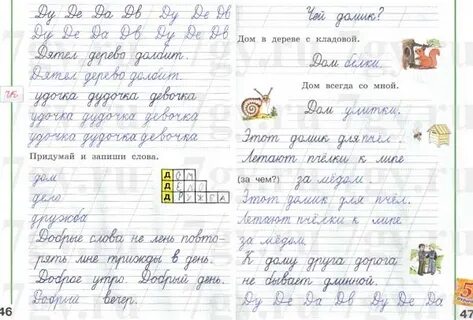 Ду Де Да Дв Ду Де Дв
Ду Де Да Дв Ду Де Дв
Дятел дерево долбит.
Дятел дерево долбит.
удочка дудочка девочка
удочка дудочка девочка
удочка дудочка девочка
Придумай и запиши слова.
дом
дело
дружба
ДОМ
ДЕЛО
ДРУЖБА
Добрые слова не лень повто-
рять мне трижды в день.
Доброе утро. Добрый день.
Добрый вечер.
46
Чей домик?
Дом в дереве с кладовой.
Дом белки.
Дом всегда со мной.
Дом улитки.
Этот домик для пчёл.
Летают пчёлки к липе
(за чем?) за мёдом.
Этот домик для пчёл.
Летают пчёлки к липе
за мёдом.
К дому друга дорога
не бывает длинной.
Ду Де Да Дв Ду Де Да
5